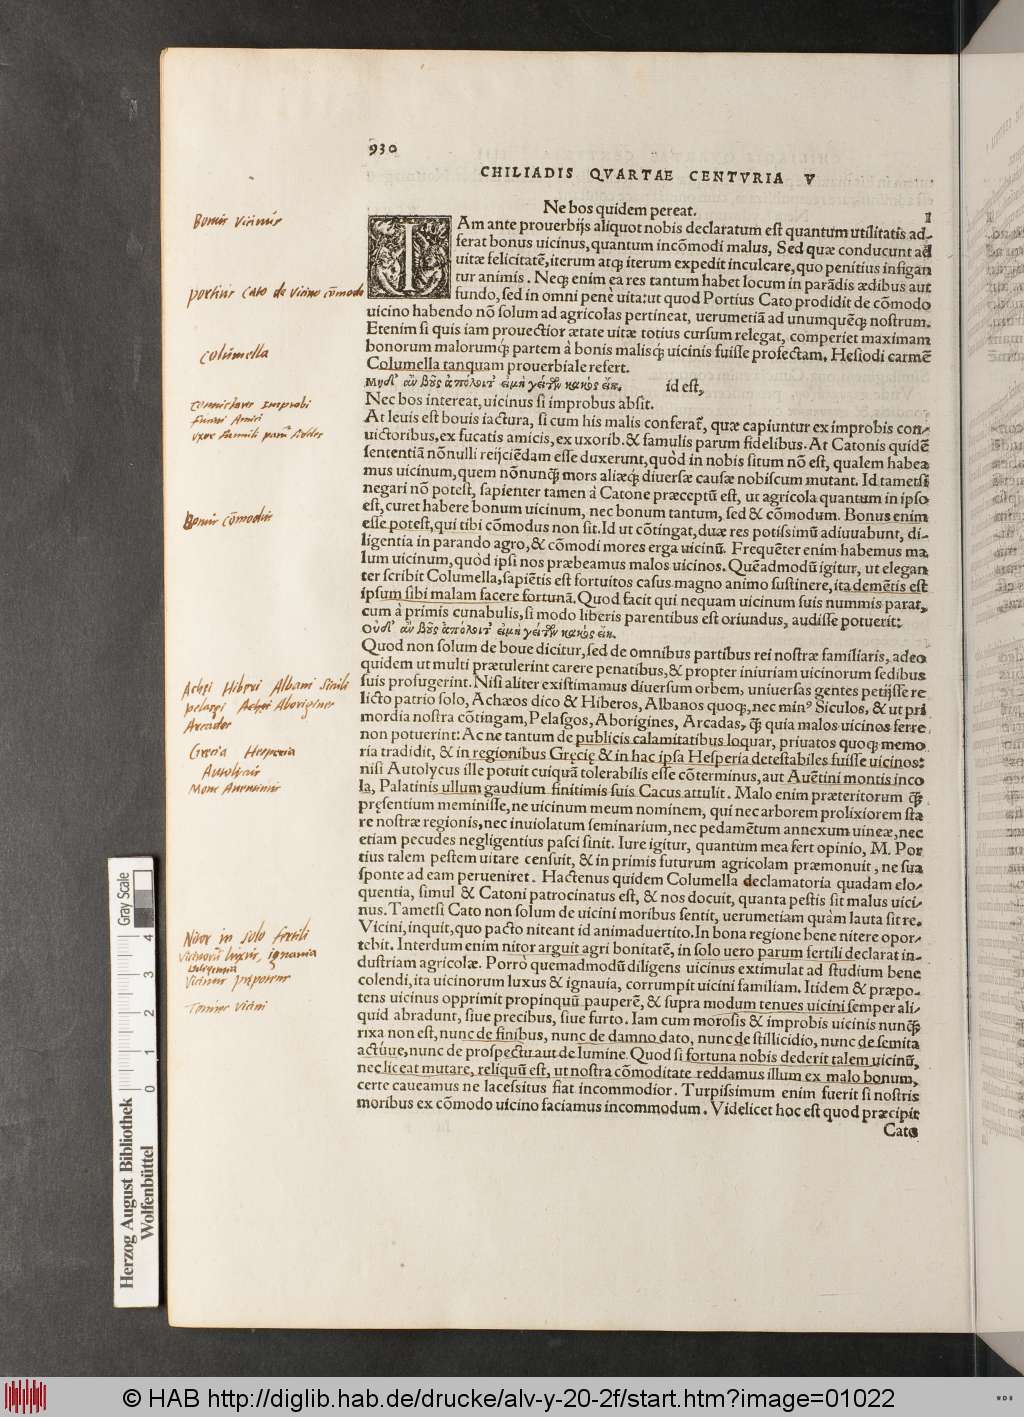 930
CHILIADIS QVARTAE CENTVRIA V
Ne bos quidem pereat. I
IAm ante prouerbijs aliquot nobis declaratum est quantum utilitatis ad-
ferat bonus uicinus, quantum incōmodi malus, Sed quæ conducunt ad
uitæ felicitatē, iterum atq; iterum expedit inculcare, quo penitius infigan
tur animis. Neq; enim ea res tantum habet locum in parādis ædibus aut
fundo, sed in omni penè uita: ut quod Portius Cato prodidit de cōmodo
uicino habendo nō solum ad agricolas pertineat, uerumetiā ad unumquēq; nostrum.
Etenim si quis iam prouectior ætate uitæ totius cursum relegat, comperiet maximam
bonorum malorumq́; partem à bonis malisq́; uicinis fuisse profectam. Hesiodi carmē
Columella tanquam prouerbiale refert.
Μηδ᾽ ἂν βοῦς ἀπόλοιτ᾽ εἰ μὴ γείτων κακὸς εἴη. id est,
Nec bos intereat, uicinus si improbus absit.
At leuis est bouis iactura, si cum his malis conferat̃, quæ capiuntur ex improbis con-
uictoribus, ex fucatis amicis, ex uxorib. & famulis parum fidelibus. At Catonis quidē
sententiā nōnulli reijciēdam esse duxerunt, quòd in nobis situm nō est, qualem habea
mus uicinum, quem nōnunq̃ mors aliæq́; diuersæ causæ nobiscum mutant. Id tametsi
negari nō potest, sapienter tamen à Catone præceptū est, ut agricola quantum in ipso
est, curet habere bonum uicinum, nec bonum tantum, sed & cōmodum. Bonus enim
esse potest, qui tibi cōmodus non sit. Id ut cōtingat, duæ res potissimū adiuuabunt, di-
ligentia in parando agro, & cōmodi mores erga uicinū. Frequēter enim habemus ma
lum uicinum, quòd ipsi nos præbeamus malos uicinos. Quēadmodū igitur, ut elegan
ter scribit Columella, sapiētis est fortuitos casus magno animo sustinere, ita demētis est
ipsum sibi malam facere fortunā. Quod facit qui nequam uicinum suis nummis parat,
cum à primis cunabulis, si modo liberis parentibus est oriundus, audisse potuerit:
Οὐδ᾽ ἂν βοῦς ἀπόλοιτ᾽ εἰ μὴ γείτων κακὸς εἴη.
Quod non solum de boue dicitur, sed de omnibus partibus rei nostræ familiaris, adeo
quidem ut multi prætulerint carere penatibus, & propter iniuriam uicinorum sedibus
suis profugerint. Nisi aliter existimamus diuersum orbem, uniuersas gentes petijsse re
licto patrio solo, Achæos dico & Hiberos, Albanos quoq;, nec minꝰ Siculos, & ut pri
mordia nostra cōtingam, Pelasgos, Aborigines, Arcadas, q̃ quia malos uicinos ferre
non potuerint: Ac ne tantum de publicis calamitatibus loquar, priuatos quoq; memo
ria tradidit, & in regionibus Gręcię & in hac ipsa Hesperia detestabiles fuisse uicinos:
nisi Autolycus ille potuit cuiquā tolerabilis esse cōterminus, aut Auētini montis inco
la, Palatinis ullum gaudium finitimis suis Cacus attulit. Malo enim præteritorum q̃
pręsentium meminisse, ne uicinum meum nominem, qui nec arborem prolixiorem sta
re nostræ regionis, nec inuiolatum seminarium, nec pedamētum annexum uineæ, nec
etiam pecudes negligentius pasci sinit. Iure igitur, quantum mea fert opinio, M. Por
tius talem pestem uitare censuit, & in primis futurum agricolam præmonuit, ne sua
sponte ad eam perueniret. Hactenus quidem Columella declamatoria quadam elo-
quentia, simul & Catoni patrocinatus est, & nos docuit, quanta pestis sit malus uici-
nus. Tametsi Cato non solum de uicini moribus sentit, uerumetiam quàm lauta sit re.
Vicini, inquit, quo pacto niteant id animaduertito. In bona regione bene nitere opor-
tebit. Interdum enim nitor arguit agri bonitatē, in solo uero parum fertili declarat in-
dustriam agricolæ. Porrò quemadmodū diligens uicinus extimulat ad studium bene
colendi, ita uicinorum luxus & ignauia, corrumpit uicini familiam. Itidem & præpo-
tens uicinus opprimit propinquū pauperē, & supra modum tenues uicini semper ali-
quid abradunt, siue precibus, siue furto. Iam cum morosis & improbis uicinis nunq̃
rixa non est, nunc de finibus, nunc de damno dato, nunc de stillicidio, nunc de semita
actūue, nunc de prospectu aut de lumine. Quod si fortuna nobis dederit talem uicinū,
nec liceat mutare, reliquū est, ut nostra cōmoditate reddamus illum ex malo bonum,
certe caueamus ne lacessitus fiat incommodior. Turpissimum enim fuerit si nostris
moribus ex cōmodo uicino faciamus incommodum. Videlicet hoc est quod præcipit
Cato
Bonus Vicinus
portius Cato de vicino cōmodo
columella
convictores Improbi
fucati Amici
uxor famuli parū fideles
Bonus cōmodus
Achęi Hiberi Albani Siculi
pelasgi Achęi Aborigines
Arcades
Grecia Hesperia
Autolicus
Mons Auentinus
Nitor in solo fertili
Vicinorū luxus, ignauia
Vicinus prępotens
Tenues Vicini
Gray Scale
0 1 2 3 4
Herzog August Bibliothek
Wolfenbüttel
© HAB http://diglib.hab.de/drucke/alv-y-20-2f/start.htm?image=01022